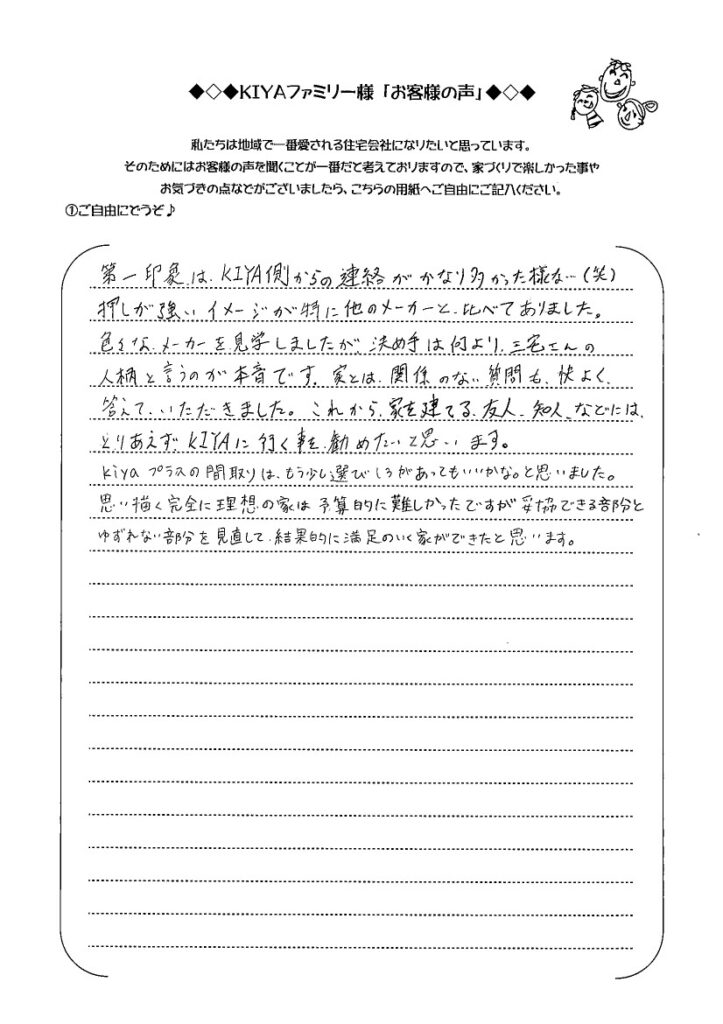 ◆◇◆KIYAファミリー様「お客様の声」◆◇◆
私たちは地域で一番愛される住宅会社になりたいと思っています。
そのためにはお客様の声を聞くことが一番だと考えておりますので、家づくりで楽しかった事や
お気づきの点などがございましたら、こちらの用紙へご自由にご記入ください。
①ご自由にどうぞ♪
第一印象は、KIYA側からの連絡がかなり多かった様な…(笑)
押しが強いイメージが特に他のメーカーと、比べてありました。
色々な、メーカーを見学しましたが、決め手は何より、三宅さんの
人柄と言うのが本音です。家とは、関係のない質問も、快よく、
答えて、いただきました。これから、家を建てる、友人、知人、などには、
とりあえず、KIYAに行く事を、勧めたいと思います。
kiyaプラスの間取りは、もう少し選びしろがあってもいいかな。と思いました。
思い描く完全に理想の家は予算的に難しかったですが妥協できる部分と
ゆずれない部分を見直して、結果的に満足のいく家ができたと思います。